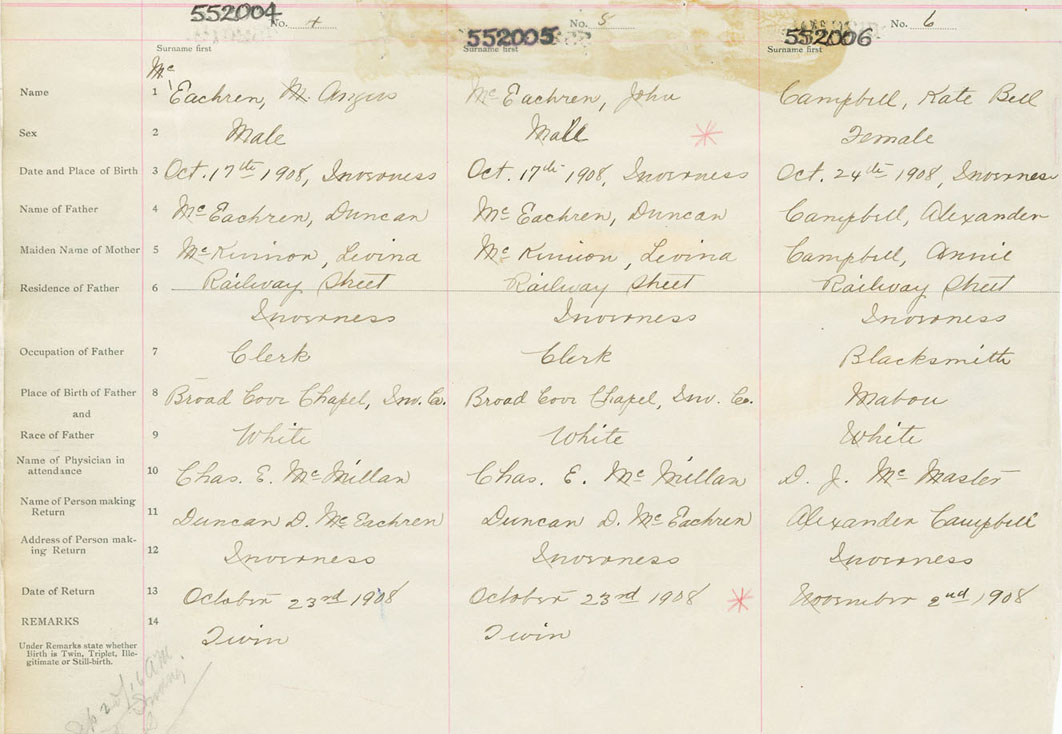 552004 No. 4 552005 No. 5 552006 No. 6
Surname first Surname first Surname first
Mc
Name 1 Eachren, M. Angus Mc Eachren, John Campbell, Kate Bell
Sex 2 Male Male Female
Date and Place of Birth 3 Oct. 17th 1908, Inverness Oct. 17th 1908, Inverness Oct. 24th 1908, Inverness
Name of Father 4 Mc Eachren, Duncan Mc Eachren, Duncan Campbell, Alexander
Maiden Name of Mother 5 Mc Kinnon, Levina Mc Kinnon, Levina Campbell, Annie
Residence of Father 6 Railway Street Railway Street Railway Street
Inverness Inverness Inverness
Occupation of Father 7 Clerk Clerk Blacksmith
Place of Birth of Father 8 Broad Cove Chapel, Inv. Co. Broad Cove Chapel, Inv. Co. Mabou
and
Race of Father 9 White White White
Name of Physician in
attendance 10 Chas. E. Mc Millan Chas. E. Mc Millan D. J. Mc Master
Name of Person making
Return 11 Duncan D. Mc Eachren Duncan D. Mc Eachren Alexander Campbell
Address of Person mak-
ing Return 12 Inverness Inverness Inverness
Date of Return 13 October 23rd 1908 October 23rd 1908 November 2nd 1908
REMARKS 14 Twin Twin
Under Remarks state whether
Birth is Twin, Triplet, Ille-
gitimate or Still-birth.